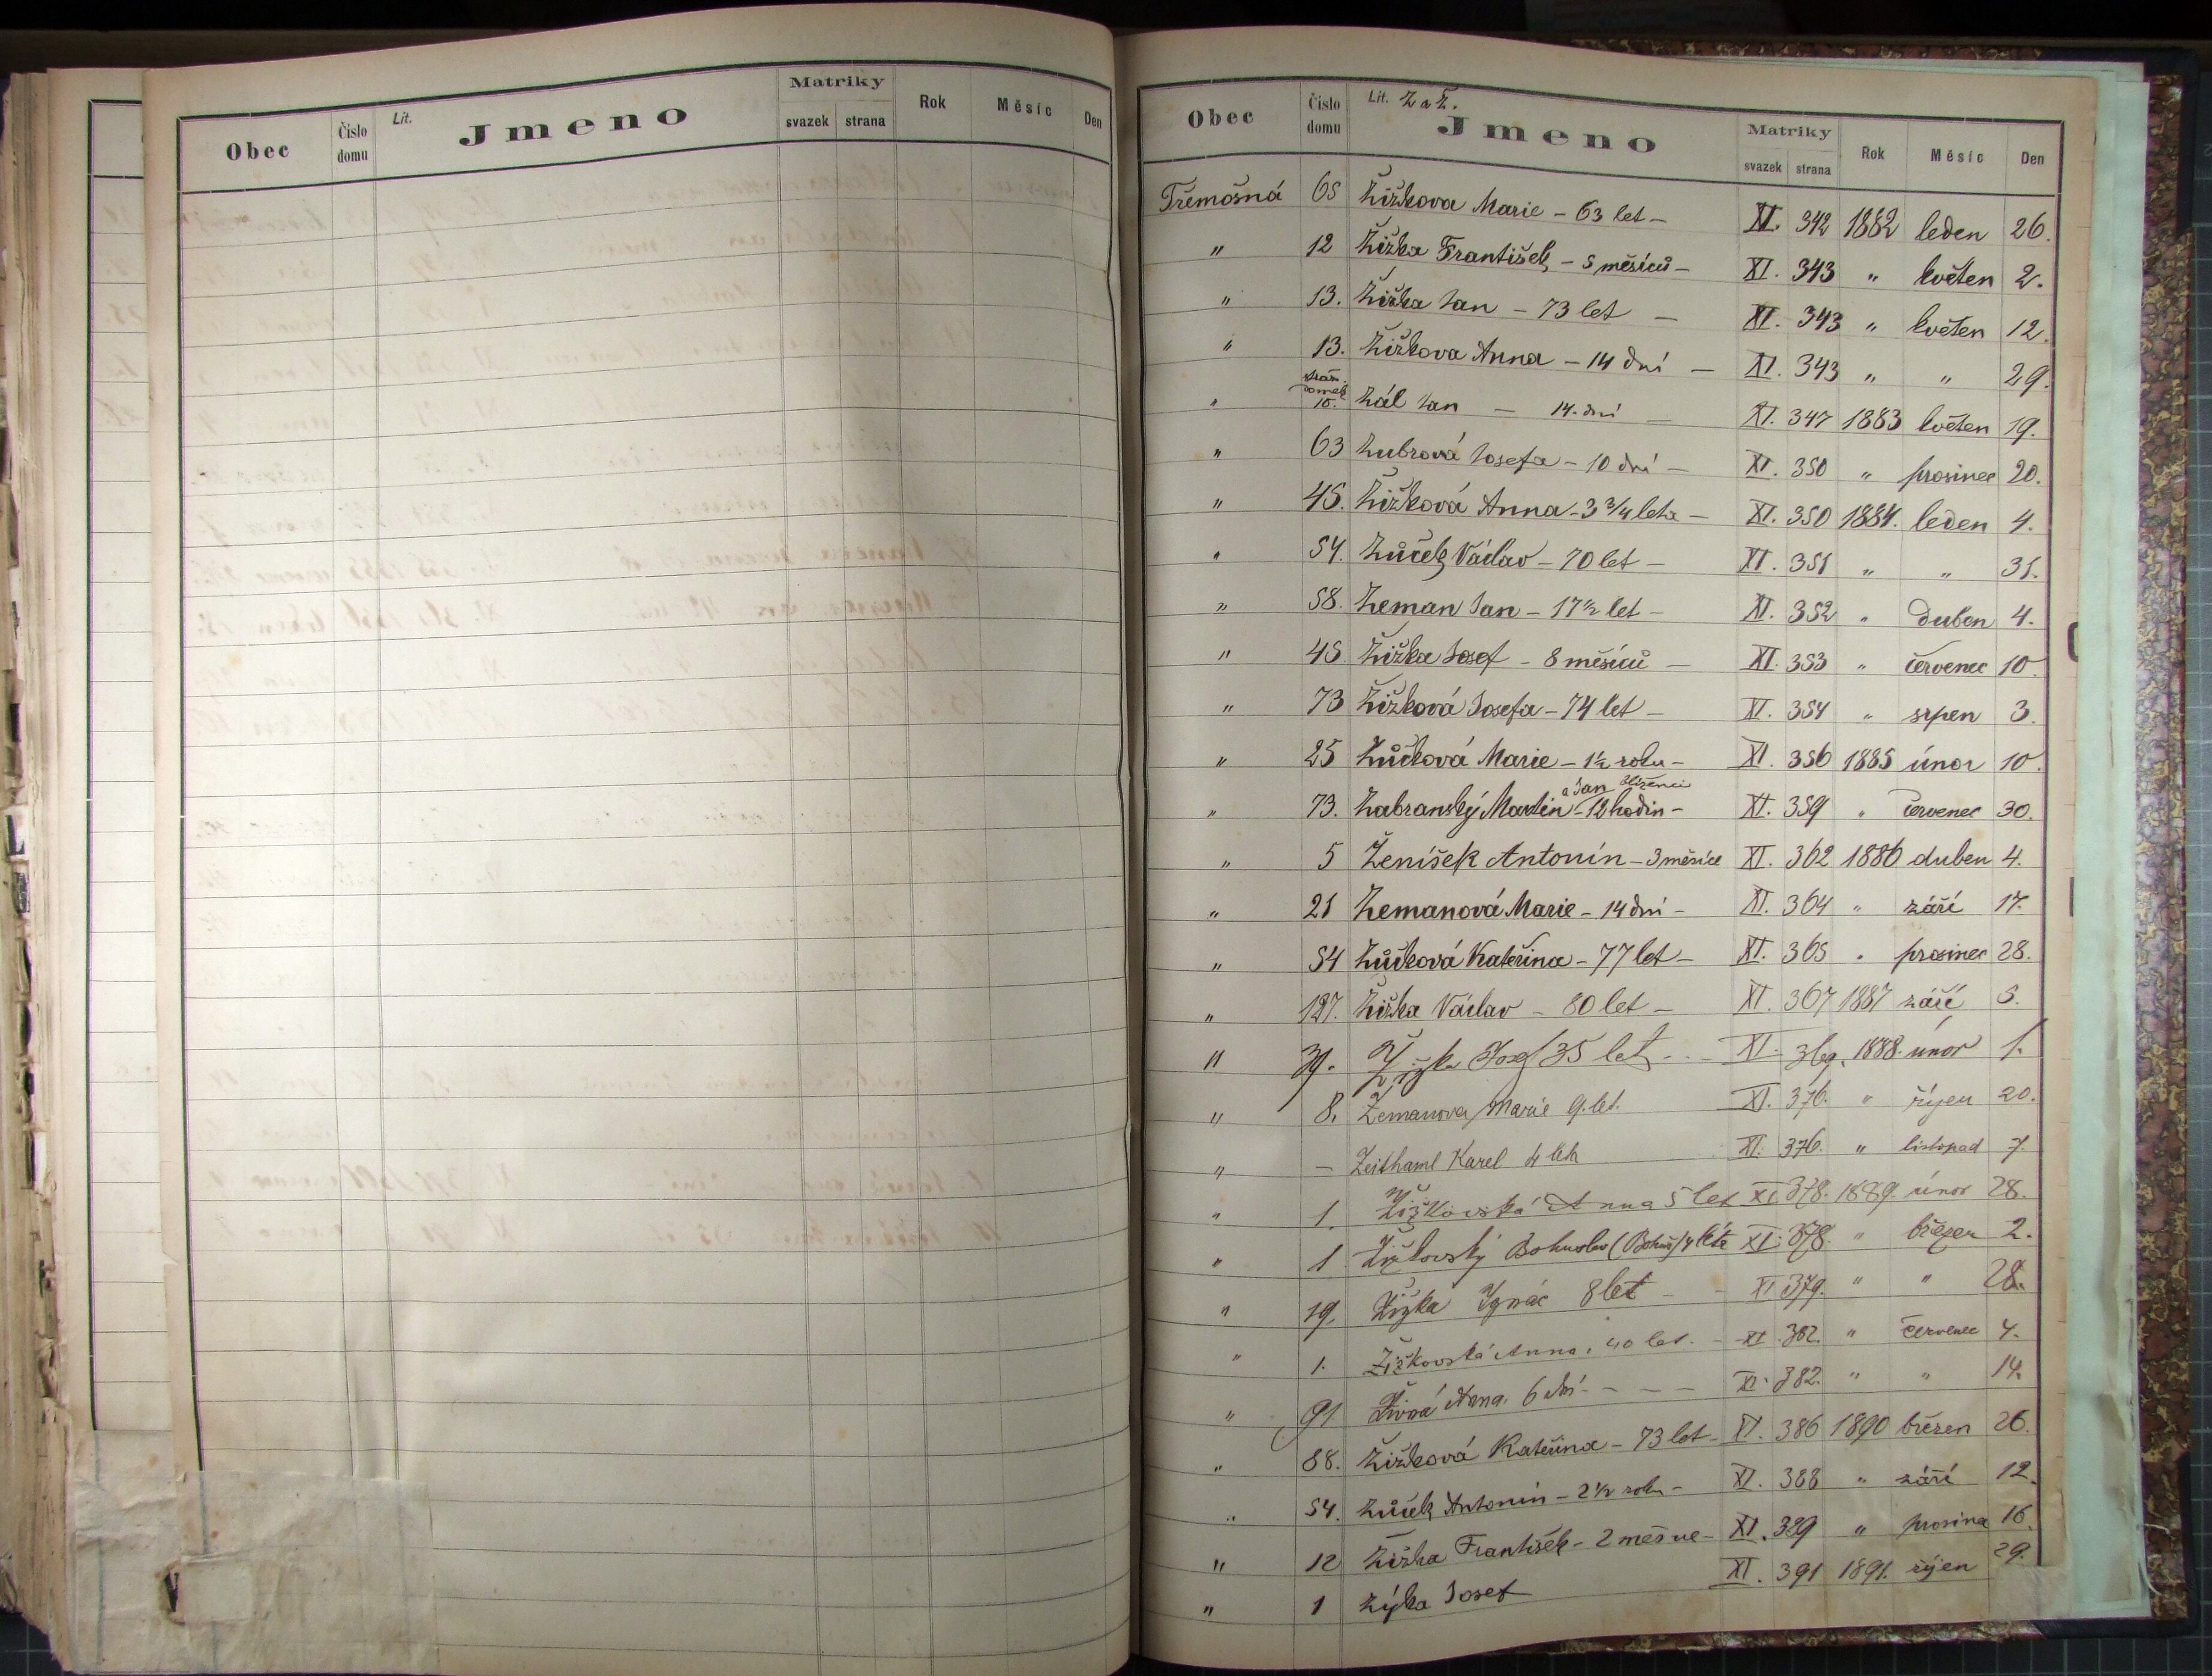 Obec Číslo domu Lit. Jmeno Matriky svazek strana Rok Měsíc Den
Obec Číslo domu Lit. Z a Ž. Jmeno Matriky svazek strana Rok Měsíc Den
Třemošná 65 Žižkova Marie - 63 let - XI. 342 1882 leden 26.
" 12 Žižka František - 5 měsíců - XI. 343 " květen 2.
" 13. Žižka Jan - 73 let - XI. 343 " květen 12.
" 13. Žižkova Anna - 14 dní - XI. 343 " " 29.
" domek 10. Zál Jan - 14. dní - XI. 347 1883 květen 19.
" 63 Zubrová Josefa - 10 dní - XI. 350 " prosinec 20.
" 45. Žižková Anna - 3 3/4 leta - XI. 350 1884. leden 4.
" 54. Žůček Václav - 70 let - XI. 351 " " 31.
" 58. Zeman Jan - 17 1/2 let - XI. 352 " duben 4.
" 45. Žižka Josef - 8 měsíců - XI. 353 " červenec 10.
" 73 Žižková Josefa - 74 let - XI. 354 " srpen 3.
" 25 Žůčková Marie - 1 1/2 roku - XI. 356 1885 únor 10.
a Jan
" 73. Zabranský Martin - 12 hodin - XI. 359 " červenec 30.
" 5 Ženíšek Antonín - 3 měsíce XI. 362 1886 duben 4.
" 21 Zemanová Marie - 14 dní - XI. 364 " září 17.
" 54 Žůčková Kateřina - 77 let - XI. 365 " prosinec 28.
" 127. Žižka Václav - 80 let - XI. 367 1887 září 5.
" 39. Žižka Josef 35 let - XI. 369. 1888. únor 1.
" 8. Zemanova Marie 9. let. XI. 376. " říjen 20.
" - Zeithaml Karel 4 let XI. 376. " listopad 7.
" 1. Žižkovská Anna 5 let XI 378. 1889. únor 28.
" 1 Žižkovský Bohuslav (Bohuš) 4 léta XI. 378. " březen 2.
" 19. Žižka Ignác 8 let - - XI 379. " " 28.
" 1. Žižkovská Anna. 40 let. - XI. 382. " červenec 4.
" 91 Živná Anna. 6 dní - - - XI. 382. " " 14.
" 88. Žižková Kateřina - 73 let - XI. 386 1890 březen 26.
" 54. Žůček Antonín - 2 1/2 roku - XI. 388 " září 12.
" 12 Žižka František - 2 měsíce - XI. 389 " prosinec 16.
" 1 Zýka Josef XI. 391 1891. říjen 29.